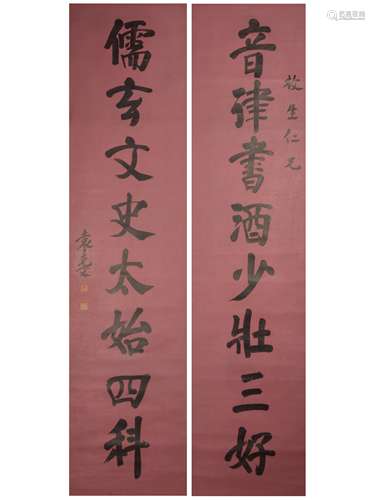 音律書酒少壯三好
仁兄
儒玄文史太始四科